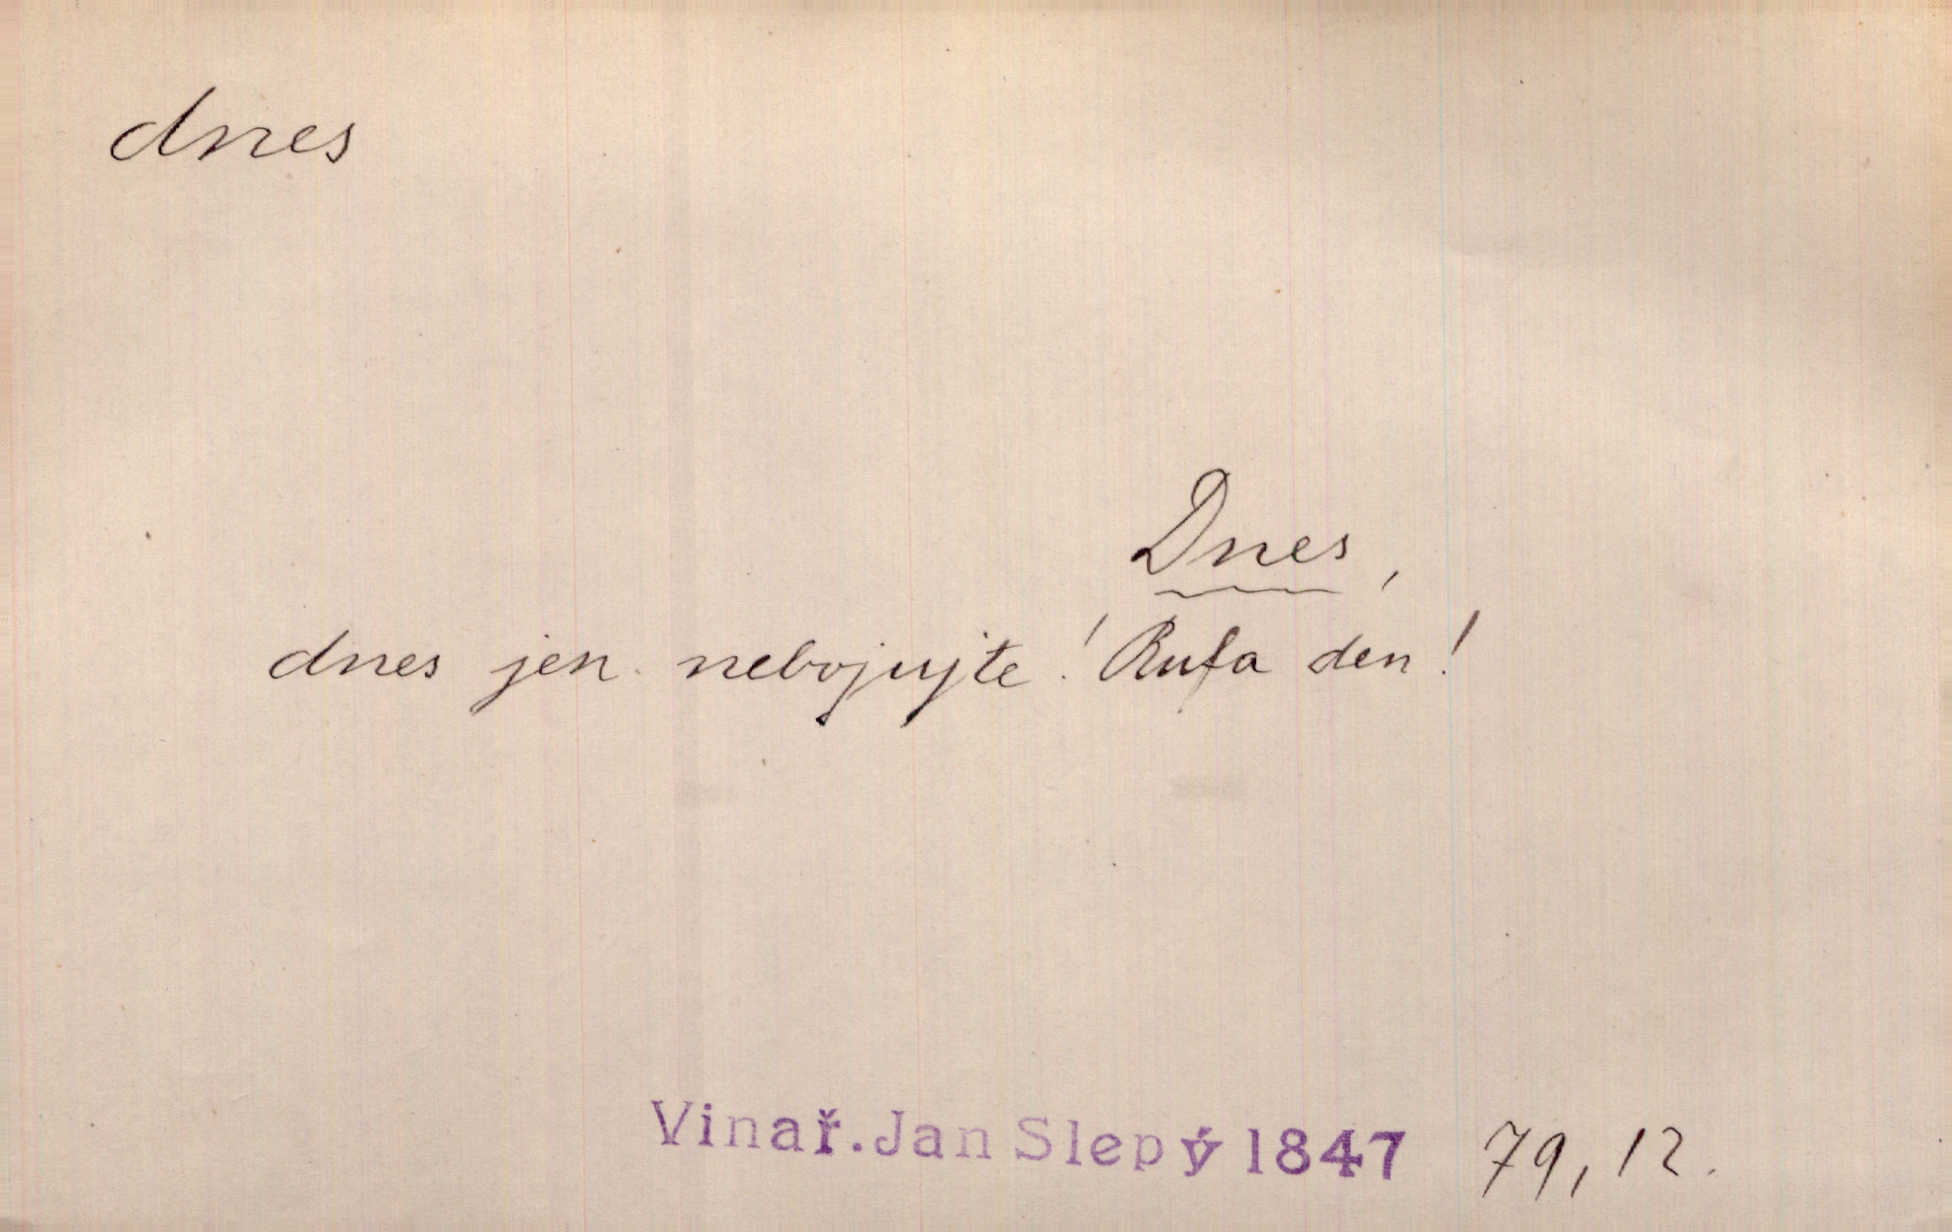 dnes
Dnes,
dnes jen nebojujte! Rufa den!
Vinař. Jan Slepý 1847 79, 12.